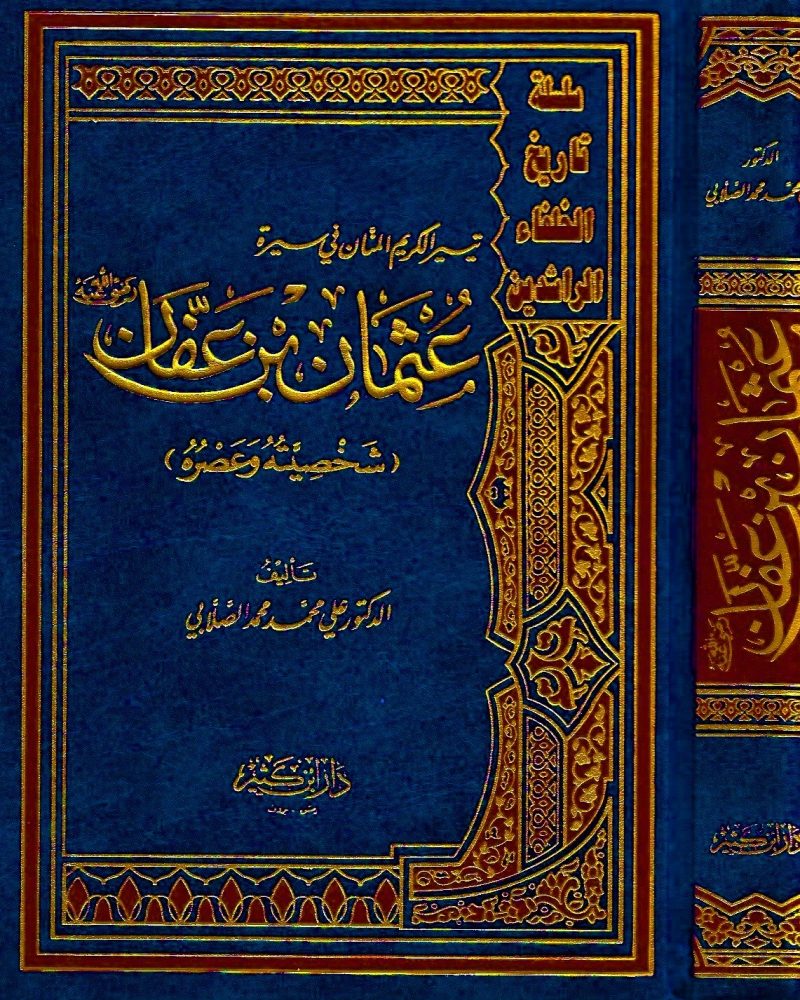 سلسلة
تاريخ
الخلفاء
الراشدين
تيسير الكريم المنان في سيرة
عُثمَان بْن عَفَّان
رضي الله عنه
(شَخْصِيَّتُهُ وَعَصْرُهُ)
تأليفُ
الدكتور علي محمّد محمد الصَّلَّابي
دَار ابْن كَثِير
دمشق - بيروت
الدكتور
محمّد محمد الصَّلَّابي
عُثمَان بْن عَفَّان
رضي الله عنه
دَار ابْن كَثِير